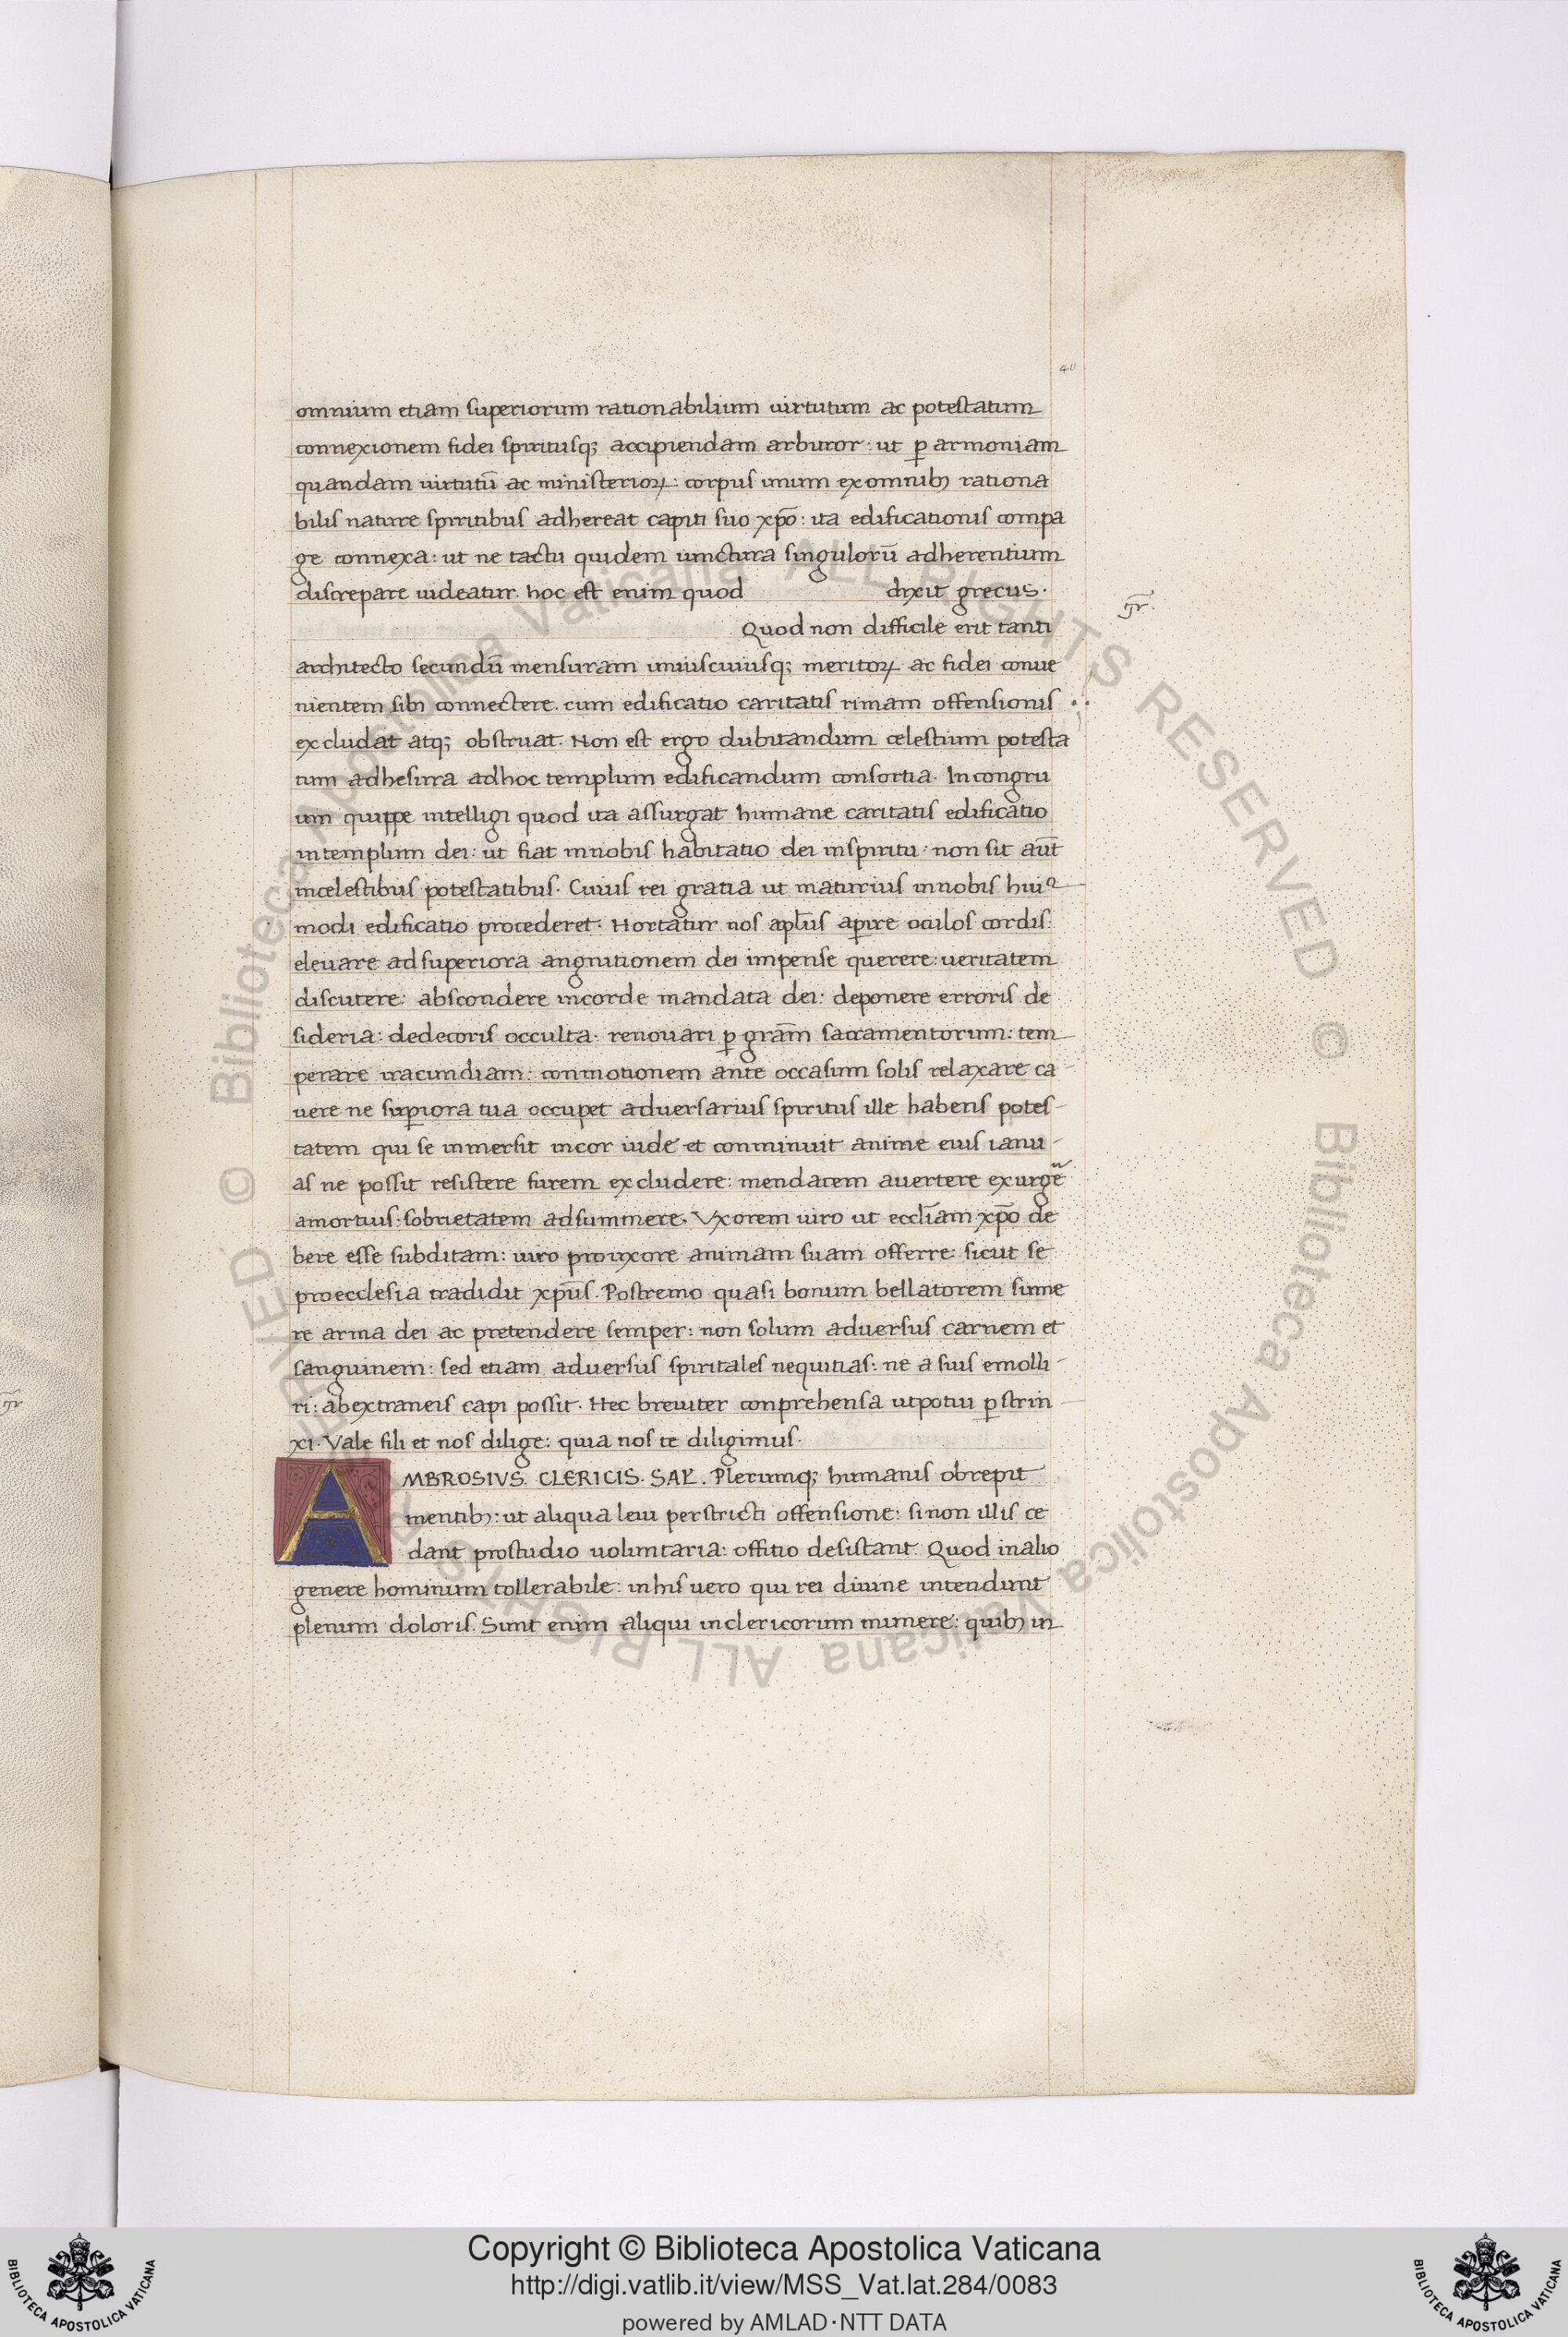 40
omnium etiam superiorum rationabilium uirtutum ac potestatum
connexionem fidei spiritusq; accipiendam arbitror: ut ꝑ armoniam
quandam uirtutū ac ministerioꝝ: corpus unum ex omnibꝫ rationa
bilis nature spiritibus adhereat capiti suo xp̄o: ita edificationis compa
ge connexa: ut ne tactu quidem iunctura singulorū adherentium
discrepare uideatur. hoc est enim quod dixit grecus.
gr̄.
Quod non difficile erit tanti
architecto secundū mensuram uniuscuiusq; meritoꝝ ac fidei conue
nientem sibi connectere. cum edificatio caritatis rimam offensionis
excludat atq; obstruat. Non est ergo dubitandum celestium potesta
tum adhesura adhoc templum edificandum consortia. Incongru
um quippe intelligi quod ita assurgat humane caritatis edificatio
intemplum dei: ut fiat innobis habitatio dei inspiritu: non sit aūt
incelestibus potestatibus. Cuius rei gratia ut maturius innobis huiꝰ
modi edificatio procederet. Hortatur nos apl̄us aꝑire oculos cordis:
eleuare adsuperiora angnitionem dei impense querere: ueritatem
discutere: abscondere incorde mandata dei: deponere erroris de
sideria: dedecoris occulta. renouari ꝑ gr̄am sacramentorum: tem
perare iracundiam: conmotionem ante occasum solis relaxare ca-
uere ne suꝑiora tua occupet aduersarius spiritus ille habens potes-
tatem qui se inmersit incor iude et conminuit anime eius ianu-
as ne possit resistere furem excludere: mendacem auertere exurgē
amortuis: sobrietatem adsummere. Vxorem uiro ut eccl̄iam xp̄o de
bere esse subditam: uiro prouxore animam suam offerre: sicut se
proecclesia tradidit xp̄us. Postremo quasi bonum bellatorem sume
re arma dei ac pretendere semper: non solum aduersus carnem et
sanguinem: sed etiam aduersus spiritales nequitias: ne a suis emolli-
ri: abextraneis capi possit. Hec breuiter conprehensa utpotui ꝑstrin
xi. Vale fili et nos dilige: quia nos te diligimus.
AMBROSIVS. CLERICIS. SAL̄. Plerumq; humanis obrepit
mentibꝫ: ut aliqua leui perstricti offensione: sinon illis ce
dant prostudio uoluntaria: offitio desistant. Quod inalio
genere hominum tollerabile: inhis uero qui rei diuine intendunt
plenum doloris. Sunt enim aliqui inclericorum munere: quibꝫ in
gr
© Biblioteca Apostolica Vaticana ALL RIGHTS RESERVED © Biblioteca Apostolica Vaticana ALL RIGHTS RESERVED
Copyright © Biblioteca Apostolica Vaticana
http://digi.vatlib.it/view/MSS_Vat.lat.284/0083
powered by AMLAD·NTT DATA
BIBLIOTECA APOSTOLICA VATICANA
BIBLIOTECA APOSTOLICA VATICANA